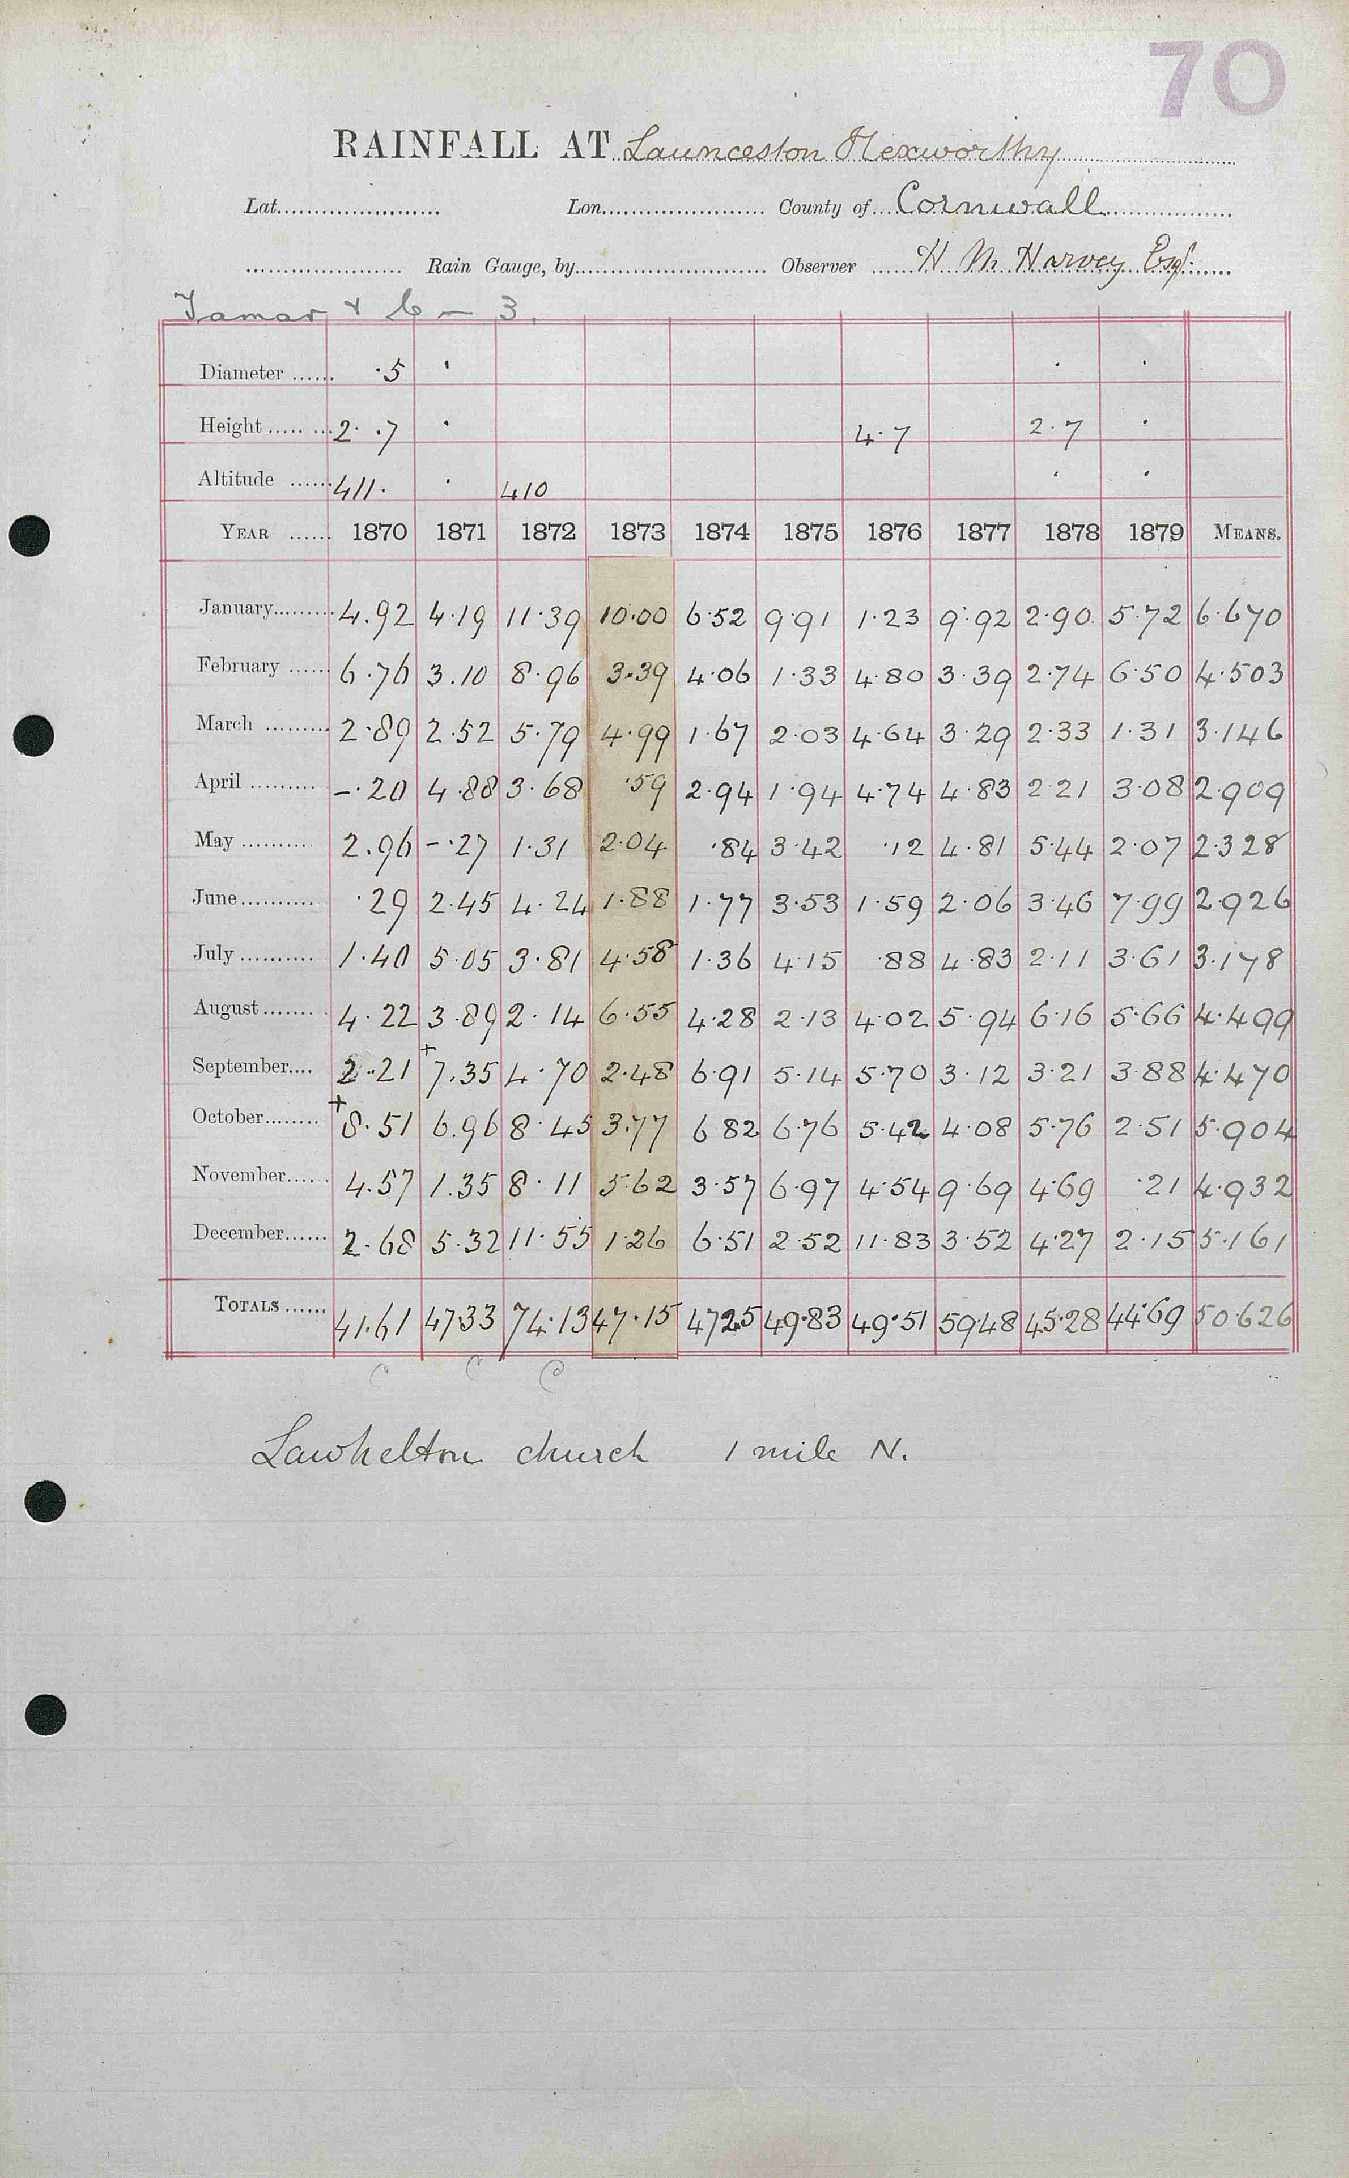 70
RAINFALL AT Launceston Hexworthy
Lat. Lon. County of Cornwall
Rain Gauge, by Observer H M Harvey Esq.
Tamar & C — 3.
Diameter ·5 ·  · ·
Height 2· ·7 · 4·7 2·7 ·
Altitude 411· · 410 · ·
YEAR 1870 1871 1872 1873 1874 1875 1876 1877 1878 1879 MEANS.
January 4.92 4·19 11·39 10·00 6·52 9·91 1·23 9·92 2·90 5·72 6·670
February 6·76 3.10 8·96 3·39 4·06 1·33 4·80 3·39 2·74 6·50 4·503
March 2·89 2·52 5·79 4·99 1·67 2·03 4·64 3·29 2·33 1·31 3·146
April –·20 4·88 3·68 ·59 2·94 1·94 4·74 4·83 2·21 3·08 2·909
May 2.96 –·27 1·31 2·04 ·84 3·42 ·12 4·81 5·44 2·07 2·328
June ·29 2·45 4·24 1·88 1·77 3·53 1·59 2·06 3·46 7·99 2·926
July 1·40 5·05 3·81 4·58 1·36 4·15 ·88 4·83 2·11 3·61 3·178
August 4·22 3·89 2·14 6·55 4·28 2·13 4·02 5·94 6·16 5·66 4·499
September 2·21 +7.35 4·70 2·48 6·91 5·14 5·70 3·12 3·21 3·88 4·470
October +8·51 6.96 8·45 3·77 6·82 6·76 5·42 4·08 5·76 2·51 5·904
November 4.57 1.35 8·11 5·62 3·57 6·97 4·54 9·69 4·69 ·21 4·932
December 2·68 5·32 11·55 1·26 6·51 2·52 11·83 3·52 4·27 2·15 5·161
TOTALS 41.61 47·33 74·13 47·15 47·25 49·83 49·51 59·48 45·28 44·69 50·626
C C C
Lawhelton church 1 mile N.